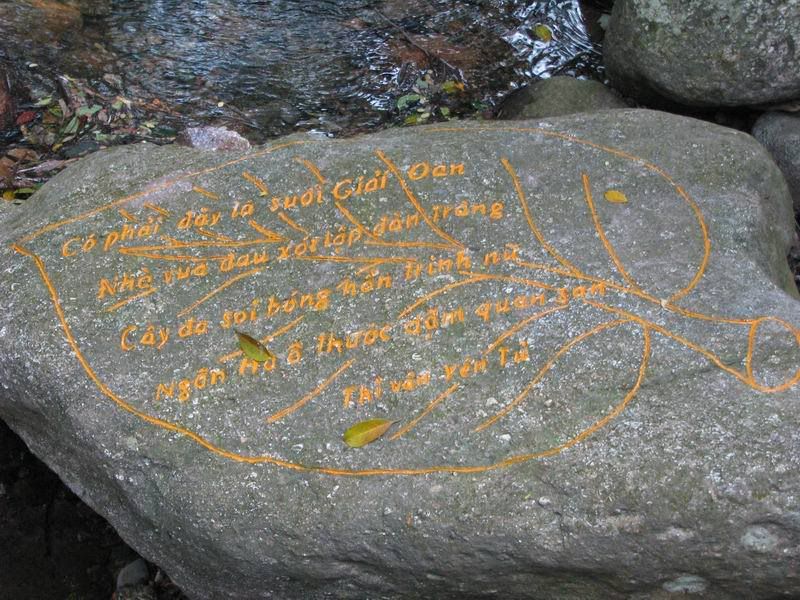 Có phải đây là suối Giải Oan
Nhà vua đau xót lập đàn tràng
Cây đa soi bóng hồn trinh nữ
Ngăn thước đậm quan san
Thi vân Yên Tử